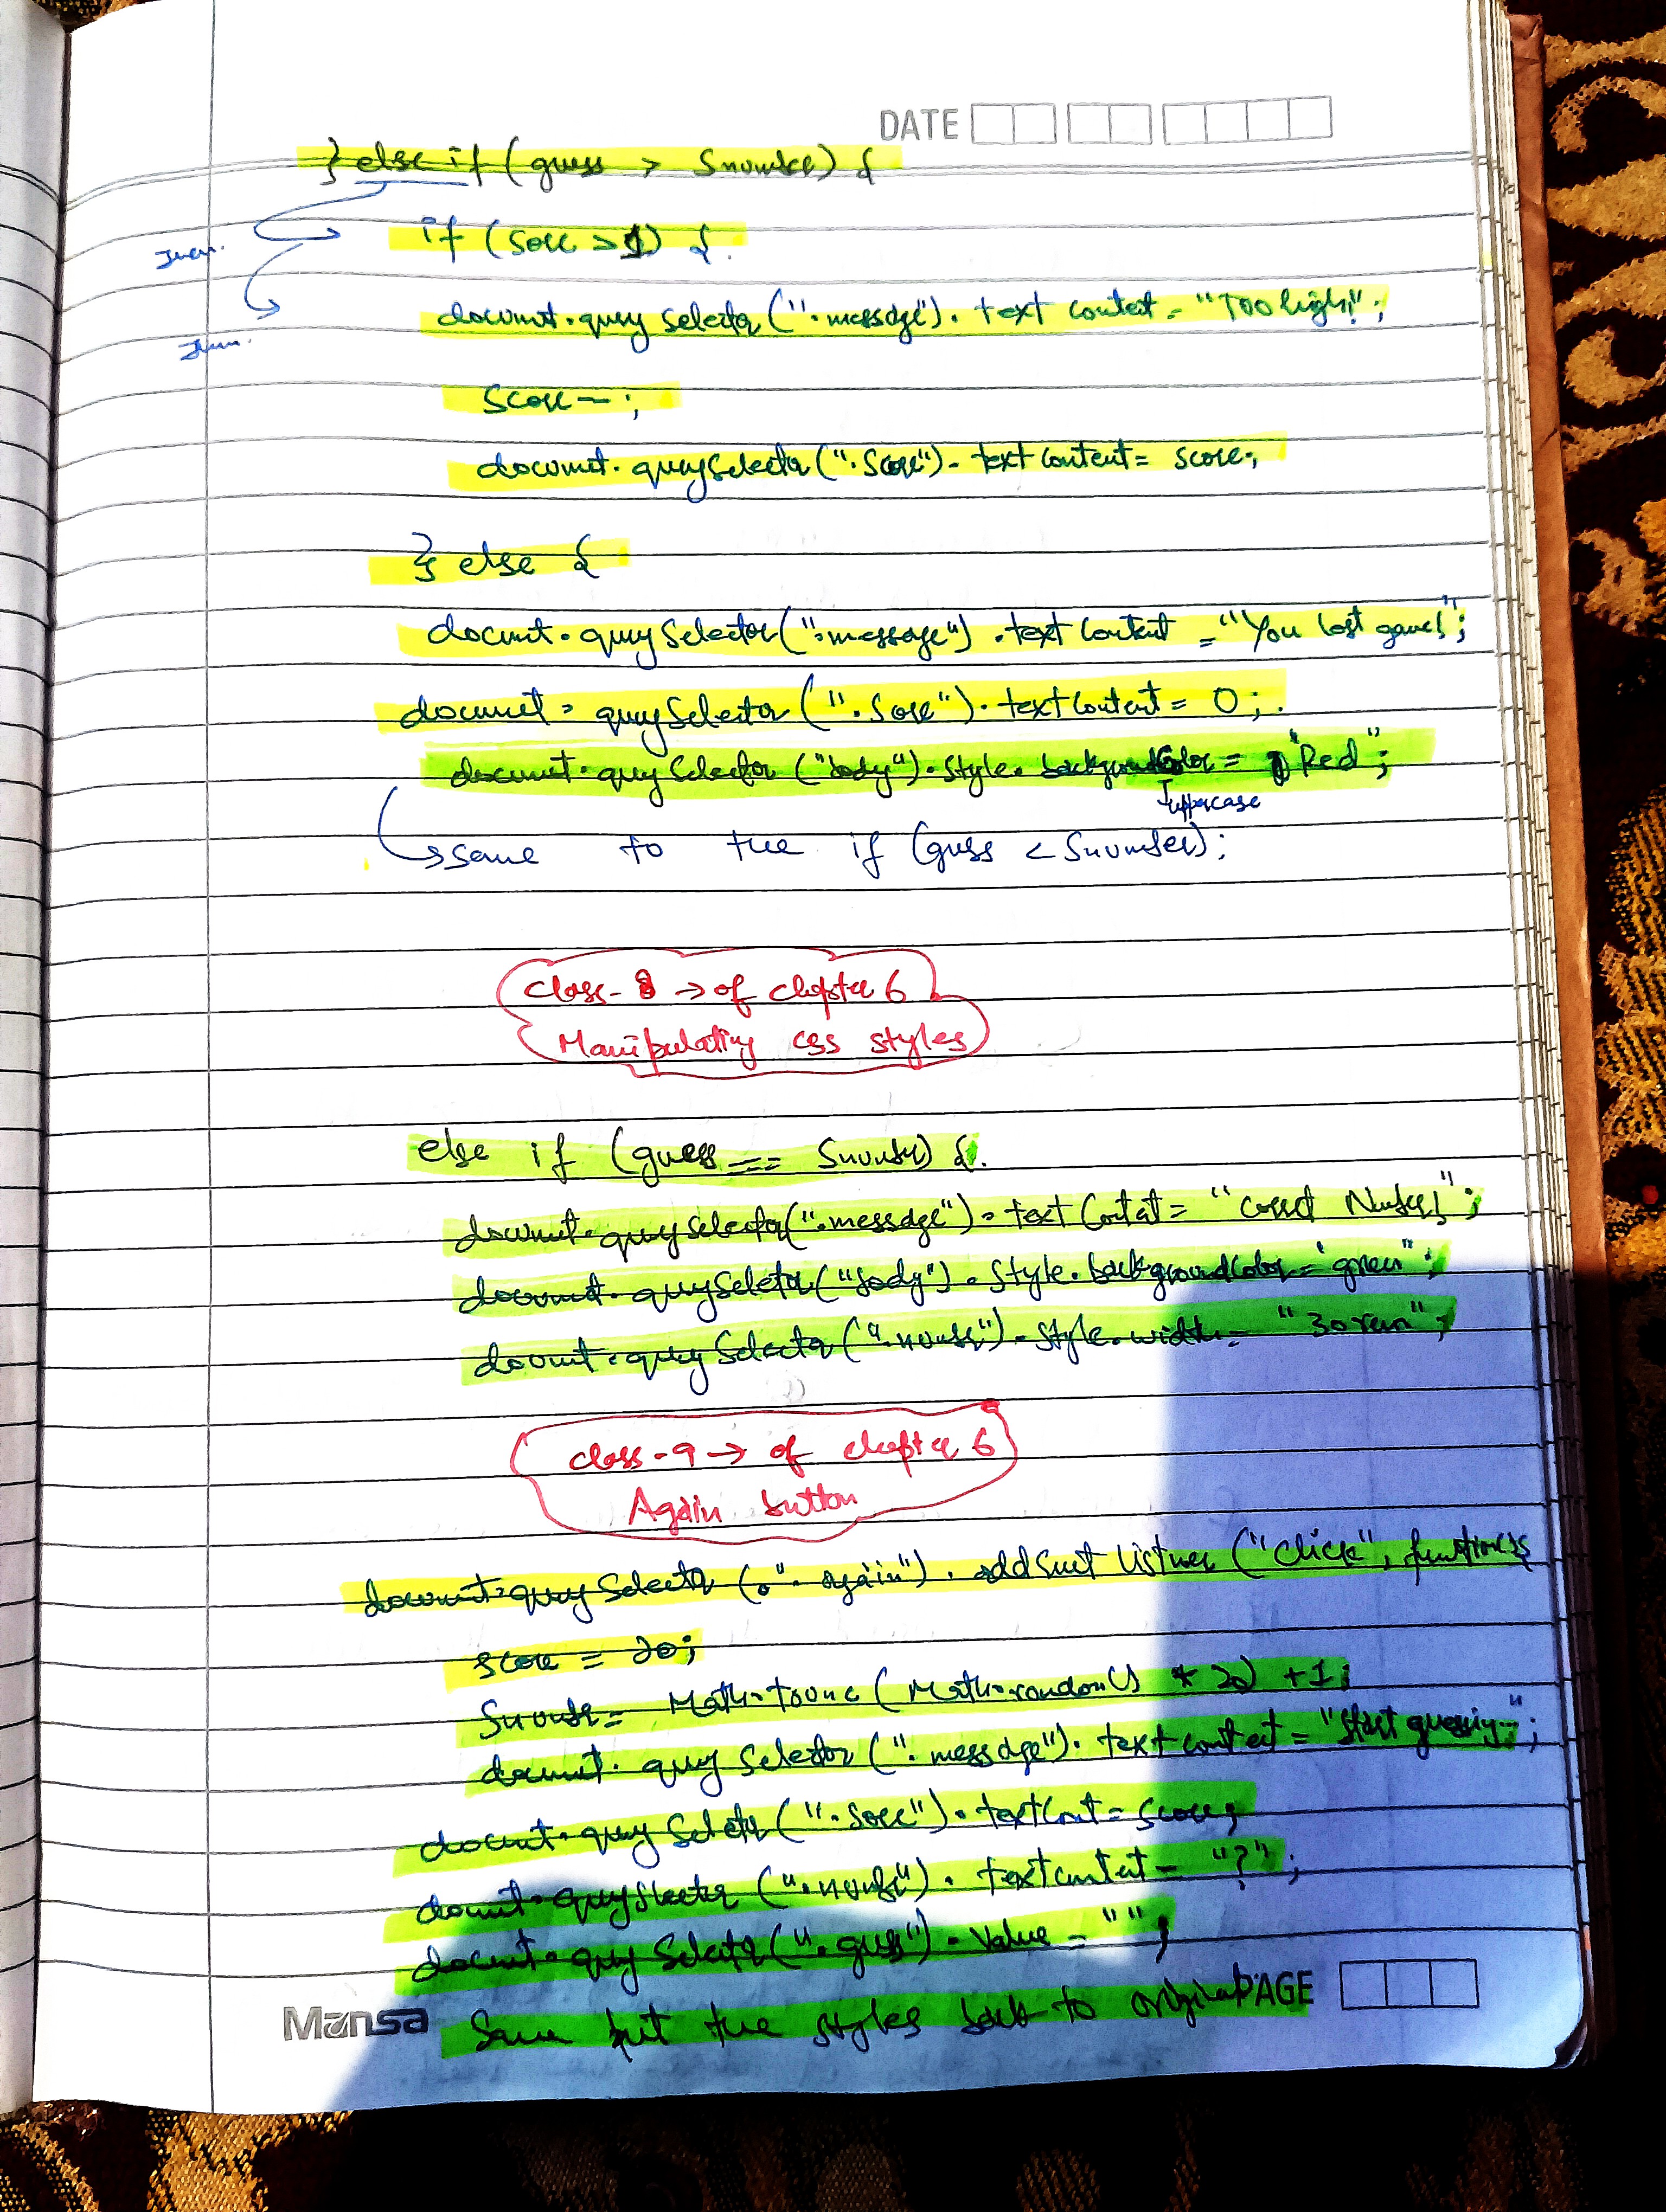 DATE
} else if (guess > Snumber) {
if (Score >1) {
document.querySelector(".message").textContent = "Too high!";
Score--;
document.querySelector(".Score").textContent = score;
} else {
document.querySelector(".message").textContent = "You lost game!";
document.querySelector(".Score").textContent = 0;
document.querySelector("body").style.backgroundColor = "Red";
uppercase
same to the if (guess < Snumber);
class-8 → of chapter 6
Manipulating css styles
else if (guess === Snumber) {
document.querySelector(".message").textContent = "Correct Number!";
document.querySelector("body").style.backgroundColor = "green";
document.querySelector(".number").style.width = "30rem";
class-9 → of chapter 6
Again button
document.querySelector(".again").addEventListener("click", function() {
score = 20;
Snumber = Math.trunc(Math.random() * 20) + 1;
document.querySelector(".message").textContent = "Start guessing..";
document.querySelector(".Score").textContent = score;
document.querySelector(".number").textContent = "?";
document.querySelector(".guess").value = "";
Mansa
Same but the styles back to original
PAGE